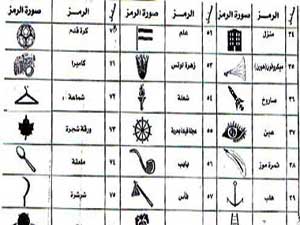 الرمز صورة الرمز الرمز صورة الرمز الرمز صورة الرمز
٣٤ منزل ٥٢ علم كرة قدم
٣٥ ٥٣ زهرة لوتس ٧١ كاميرا
٣٦ صاروخ ٥٤ شعلة ٧٢ شماعة
٣٧ عين ٥٥ عجلة قيادة بحرية ٧٣ ورقة شجرة
٣٨ ثمرة موز ٥٦ بايب ٧٤ ملعقة
٣٩ هلب ٥٧ فأس ٧٥ شرشرة